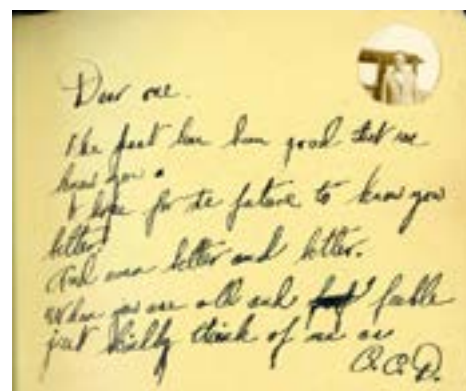 Dear one.
The past has been good that we
knew you &
I hope for the future to know you
better
And even better and better.
When we are old and feeble
just kindly think of me as
C.C.D.